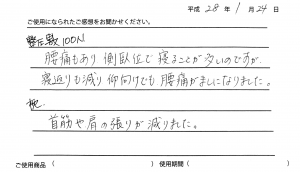 平成 28 年 1 月 24 日
ご使用になられたご感想をお聞かせください。
整圧敷100N
腰痛もあり側臥位で寝ることが多いのですが、
寝返りも減り仰向けでも腰痛がましになりました。
枕
首筋や肩の張りが減りました。
ご使用商品（　　　　　　　）使用期間（　　　　　　　）